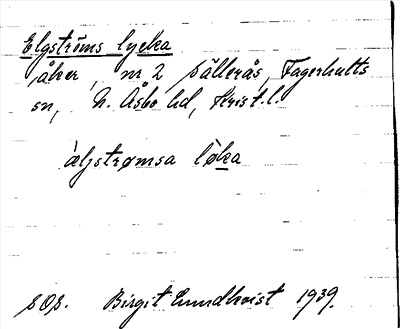 Elgströms lycka
åker, nr 2 Sällerås, Fagerhults
sn, N. Åsbo hd, Krist. l.
àljstrømsa løka
sOs. Birgit Lundkvist 1939.